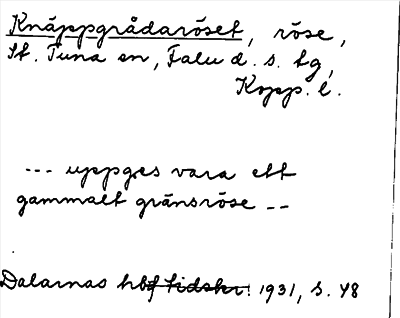 Knäppgrådaröset, röse,
St. Tuna sn, Falu d. s. tg,
Kopp. l.
--- uppges vara ett
gammalt gränsröse --
Dalarnas hbf tidskr. 1931, s. 48